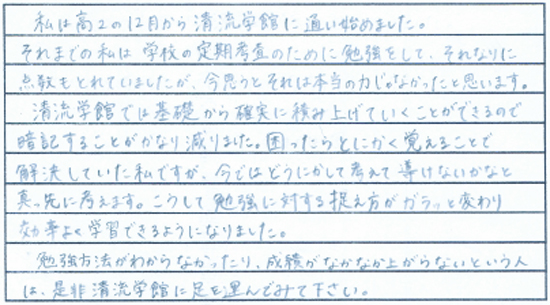 私は高2の12月から清流学館に通い始めました。
それまでの私は学校の定期考査のために勉強をして、それなりに
点数もとれていましたが、今思うとそれは本当の力じゃなかったと思います。
清流学館では基礎から確実に積み上げていくことができるので
暗記することがかなり減りました。困ったらとにかく覚えることで
解決していた私ですが、今ではどうにかして考えて導けないかなと
真っ先に考えます。こうして勉強に対する捉え方がガラッと変わり
効率よく学習できるようになりました。
勉強方法がわからなかったり、成績がなかなか上がらないという人
は、是非清流学館に足を運んでみて下さい。